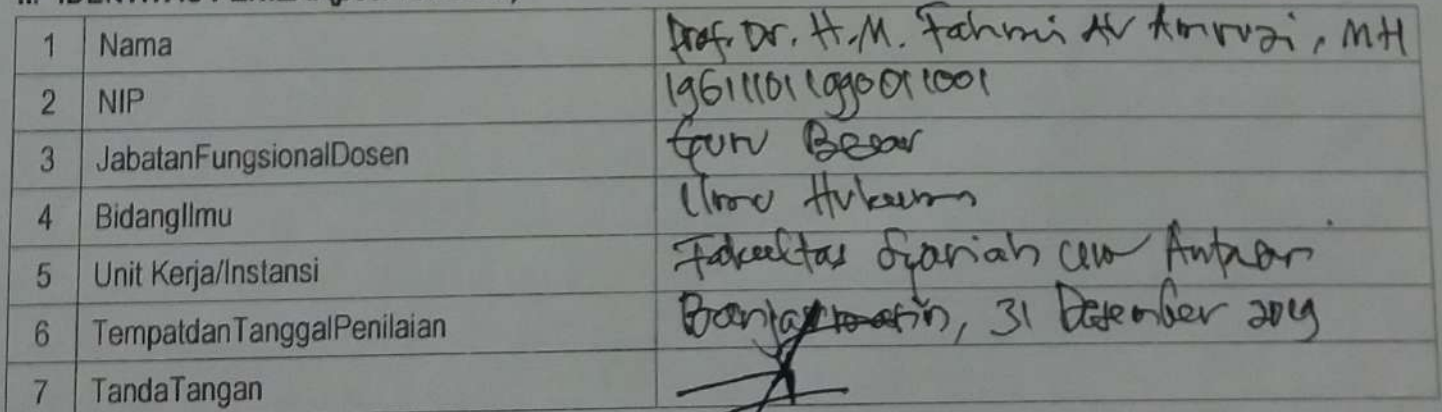 1 Nama Prof. Dr. H.M. Fahmi Al Amruzi, MH
2 NIP 196111011990011001
3 JabatanFungsionalDosen Guru Besar
4 BidangIlmu Ilmu Hukum
5 Unit Kerja/Instansi Fakultas Syariah UIN Antasari
6 TempatdanTanggalPenilaian Banjarmasin, 31 Desember 2019
7 TandaTangan